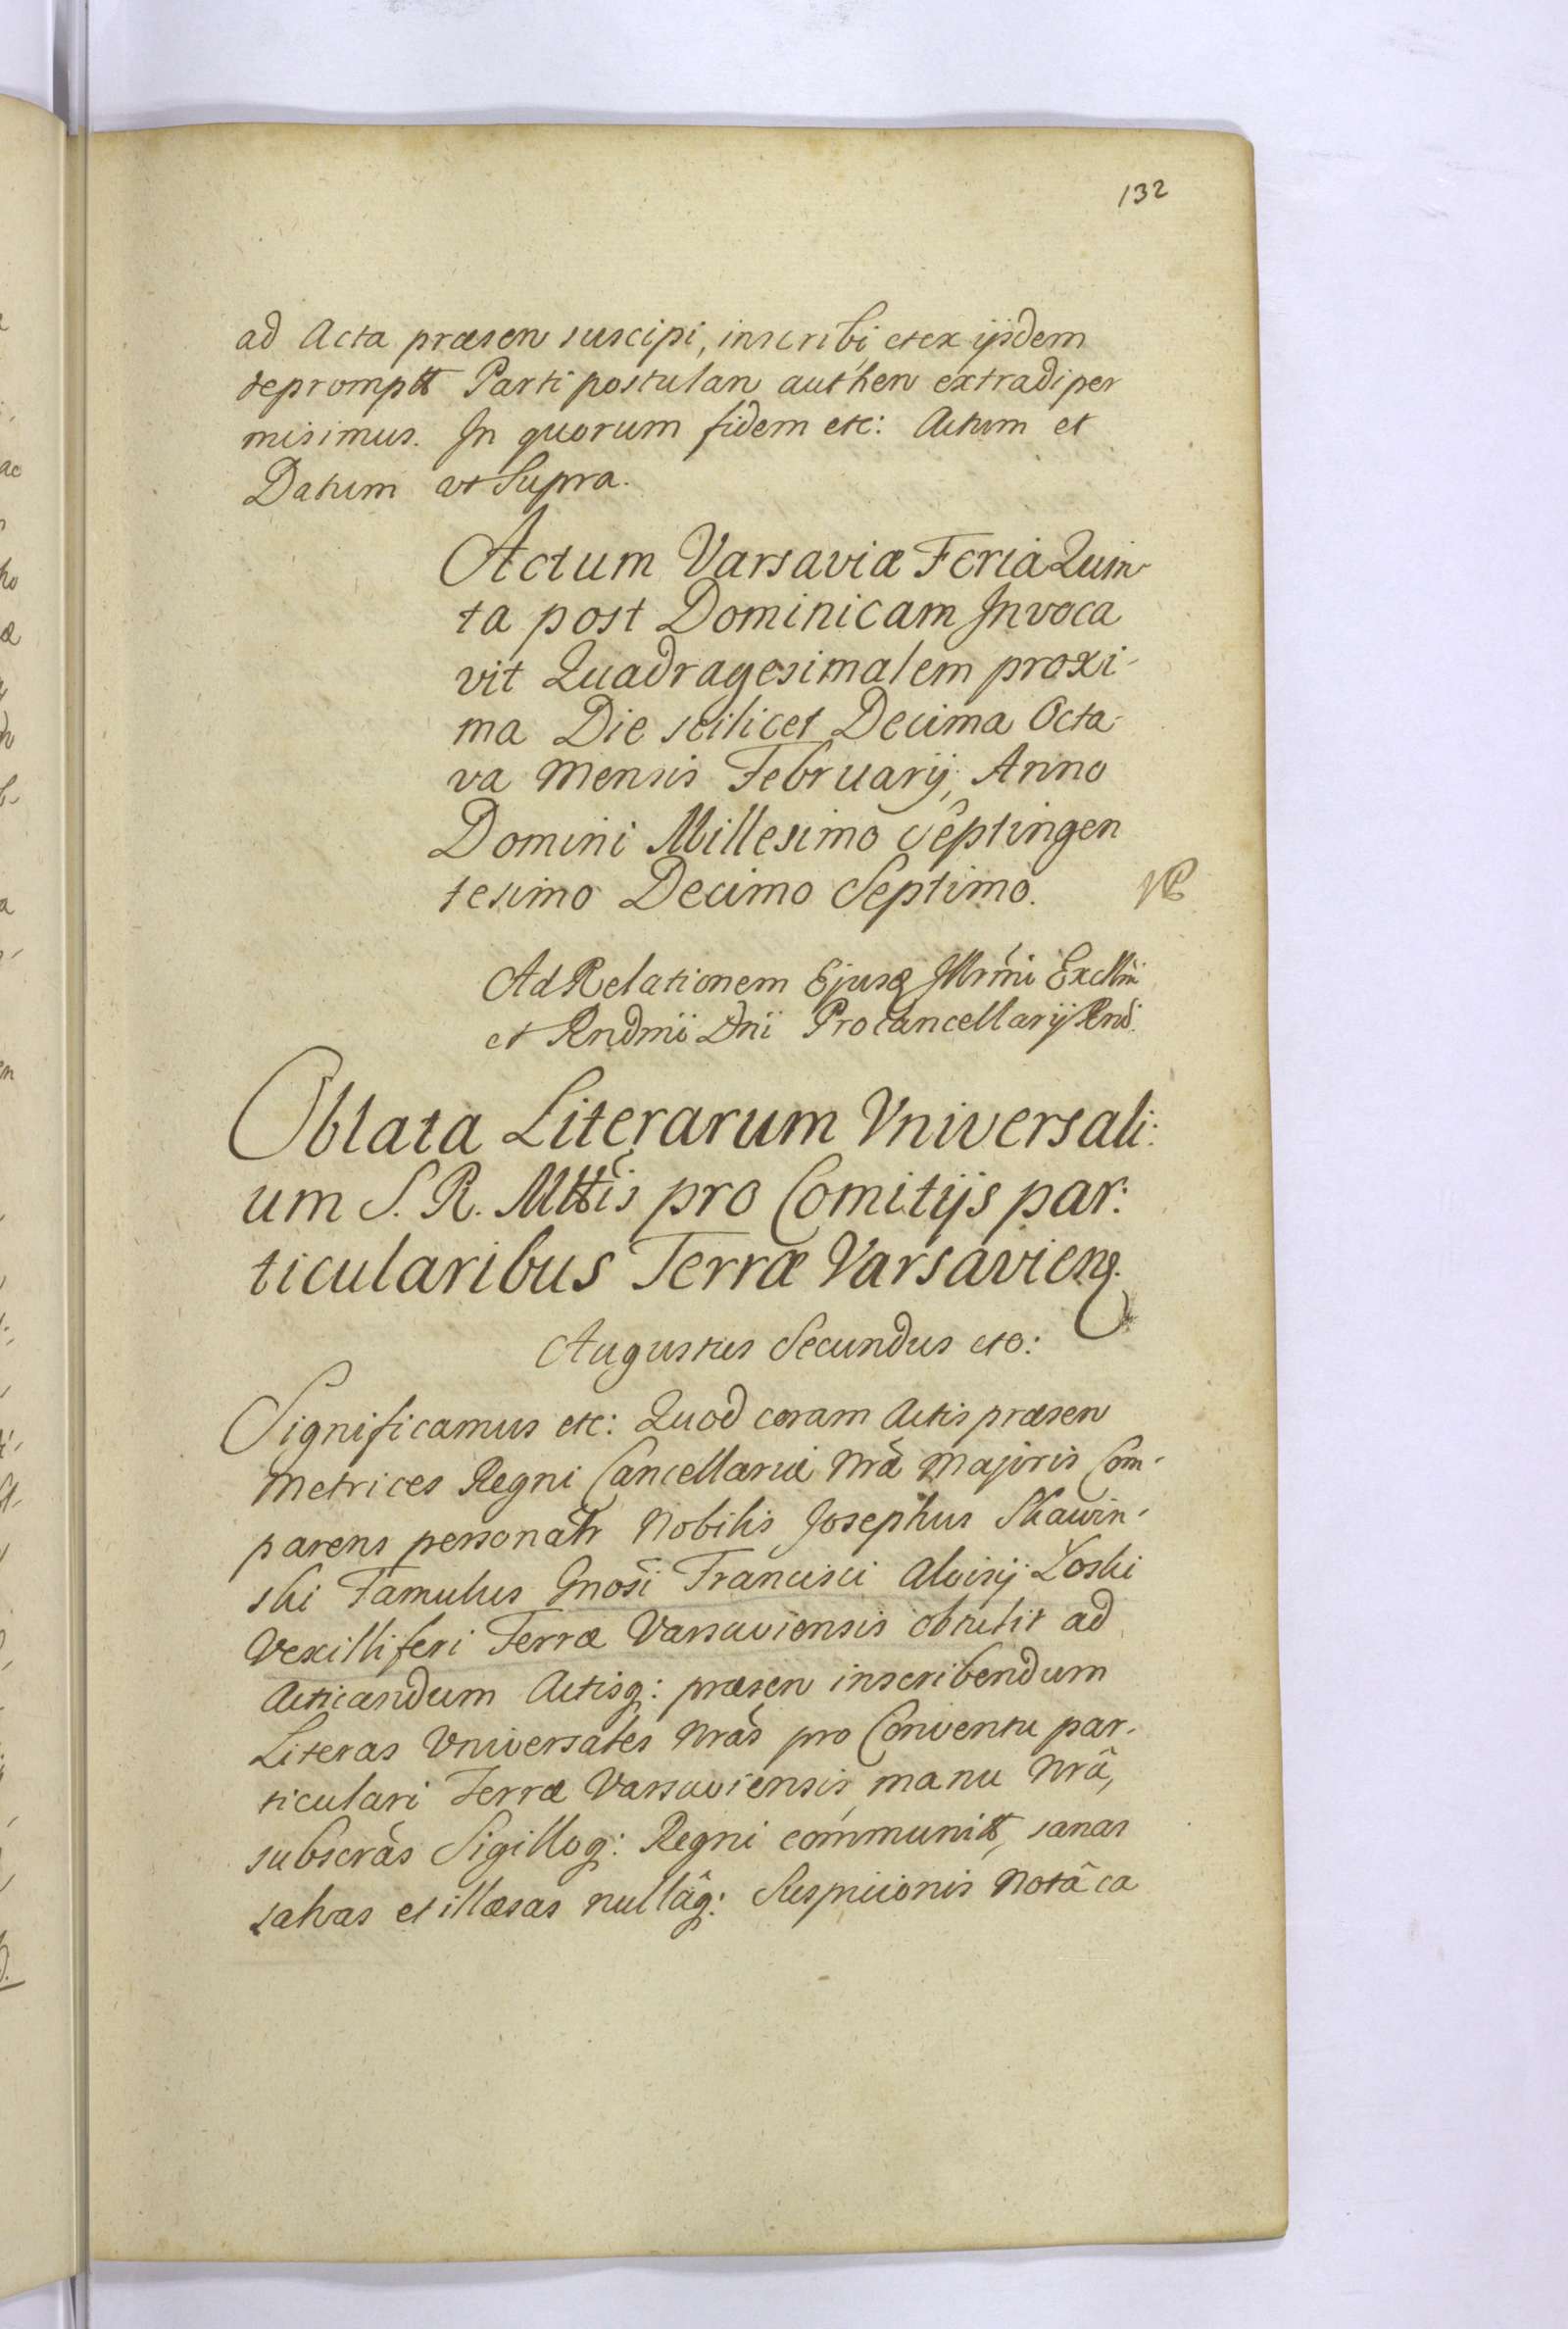 132
ad Acta præsen suscipi, inscribi, et ex ijsdem
deprompt Parti postulan authen extradi per
misimus. In quorum fidem etc: Actum et
Datum ut Supra.
Actum Varsaviæ Feria Quin-
ta post Dominicam Invoca
vit Quadragesimalem proxi-
ma Die scilicet Decima Octa-
va Mensis Februarij, Anno
Domini Millesimo Septingen
tesimo Decimo Septimo.
Ad Relationem Ejusq Illrmi Excllmi
et Rndmi Dni Procancellarij Rni.
Oblata Literarum Vniversali:
um S. R. Mttis pro Comitijs par:
ticularibus Terræ Varsavien.
Augustus Secundus etc:
Significamus etc: Quod coram Actis præsen
Metrices Regni Cancellariæ Nrã Majoris Com-
parens personalr Nobilis Josephus Skawin-
ski Famulus Gnosi Francisci Aloisij Łoski
Vexilliferi Terræ Varsaviensis obtulit ad
Acticandum Actisq: præsen inscribendum
Literas Vniversales Nras pro Conventu par-
ticulari Terræ Varsaviensis, manu Nrâ,
subscras Sigilloq: Regni communitt, sanas
salvas et illæsas nullâq: Suspicionis Notâ ca